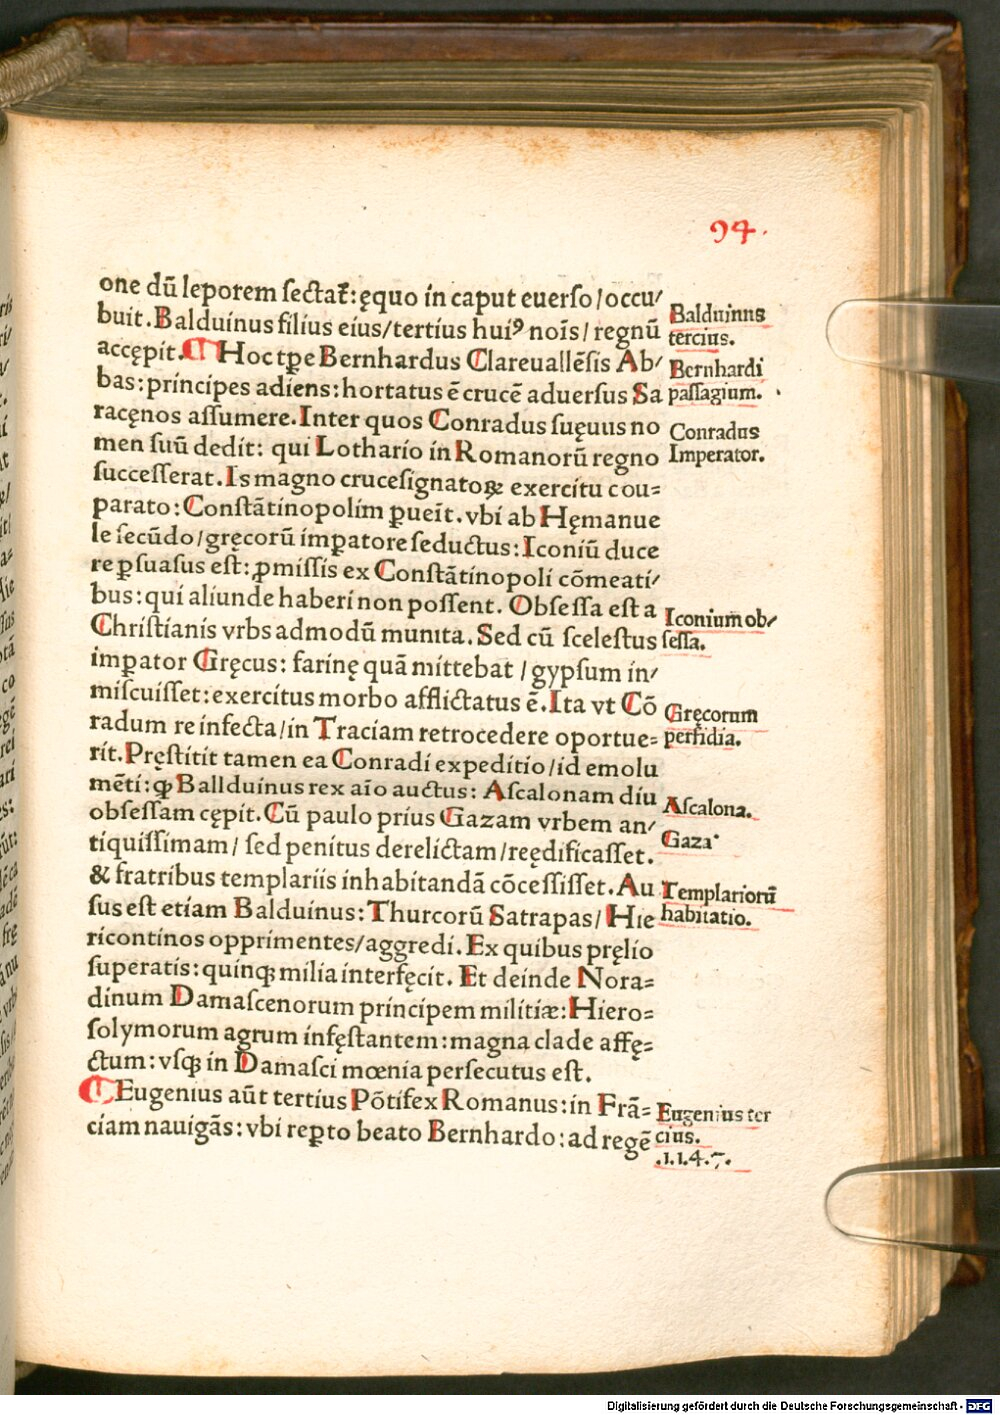 94.
one dū leporem ſectat᷑: ęquo in caput euerſo/occu/
buit. Balduinus filius eius/tertius huiꝰ noīs/ regnū
accępit. ¶ Hoc tꝑe Bernhardus Clareuallēſis Ab/
bas: principes adiens: hortatus ē crucē aduerſus Sa
racęnos aſſumere. Inter quos Conradus ſuęuus no
men ſuū dedit: qui Lothario in Romanorū regno
ſucceſſerat. Is magno crucesignatoꝝ exercitu cou⸗
parato: Conſtātinopolim ꝑueīt. vbi ab Hęmanue
le ſecūdo/gręcorū imꝑatore ſeductus: Iconiū duce
re ꝑſuaſus eſt: ꝓmiſſis ex Conſtātinopoli cōmeati/
bus: qui aliunde haberi non poſſent. Obſeſſa eſt a
Chriſtianis vrbs admodū munita. Sed cū ſceleſtus
imꝑator Gręcus: farinę quā mittebat / gypſum in/
miſcuiſſet: exercitus morbo afflictatus ē. Ita vt Cō
radum re infecta/in Traciam retrocedere oportue⸗
rit. Pręſtitit tamen ea Conradi expeditio/id emolu
mēti: ꝙ Ballduinus rex aīo auctus: Aſcalonam diu
obſeſſam cępit. Cū paulo prius Gazam vrbem an/
tiquiſſimam/ ſed penitus derelictam/reędificaſſet.
& fratribus templariis inhabitandā cōceſſiſſet. Au
ſus eſt etiam Balduinus: Thurcorū Satrapas/ Hie
ricontinos opprimentes/aggredi. Ex quibus pręlio
ſuperatis: quinqꝫ milia interfęcit. Et deinde Nora⸗
dinum Damaſcenorum principem militiæ: Hiero⸗
ſolymorum agrum infęſtantem: magna clade affę⸗
ctum: vſqꝫ in Damaſci mœnia perſecutus eſt.
¶ Eugenius aūt tertius Pōtifex Romanus: in Frā⸗
ciam nauigās: vbi reꝑto beato Bernhardo: ad regē
Balduinus
tercius.
Bernhardi
paſſagium.
Conradus
Imperator.
Iconium ob/
ſeſſa.
Gręcorum
perfidia.
Aſcalona.
Gaza
Templariorū
habitatio.
Eugenius ter
cius.
.1.1.4.7.
Digitalisierung gefördert durch die Deutsche Forschungsgemeinschaft - DFG